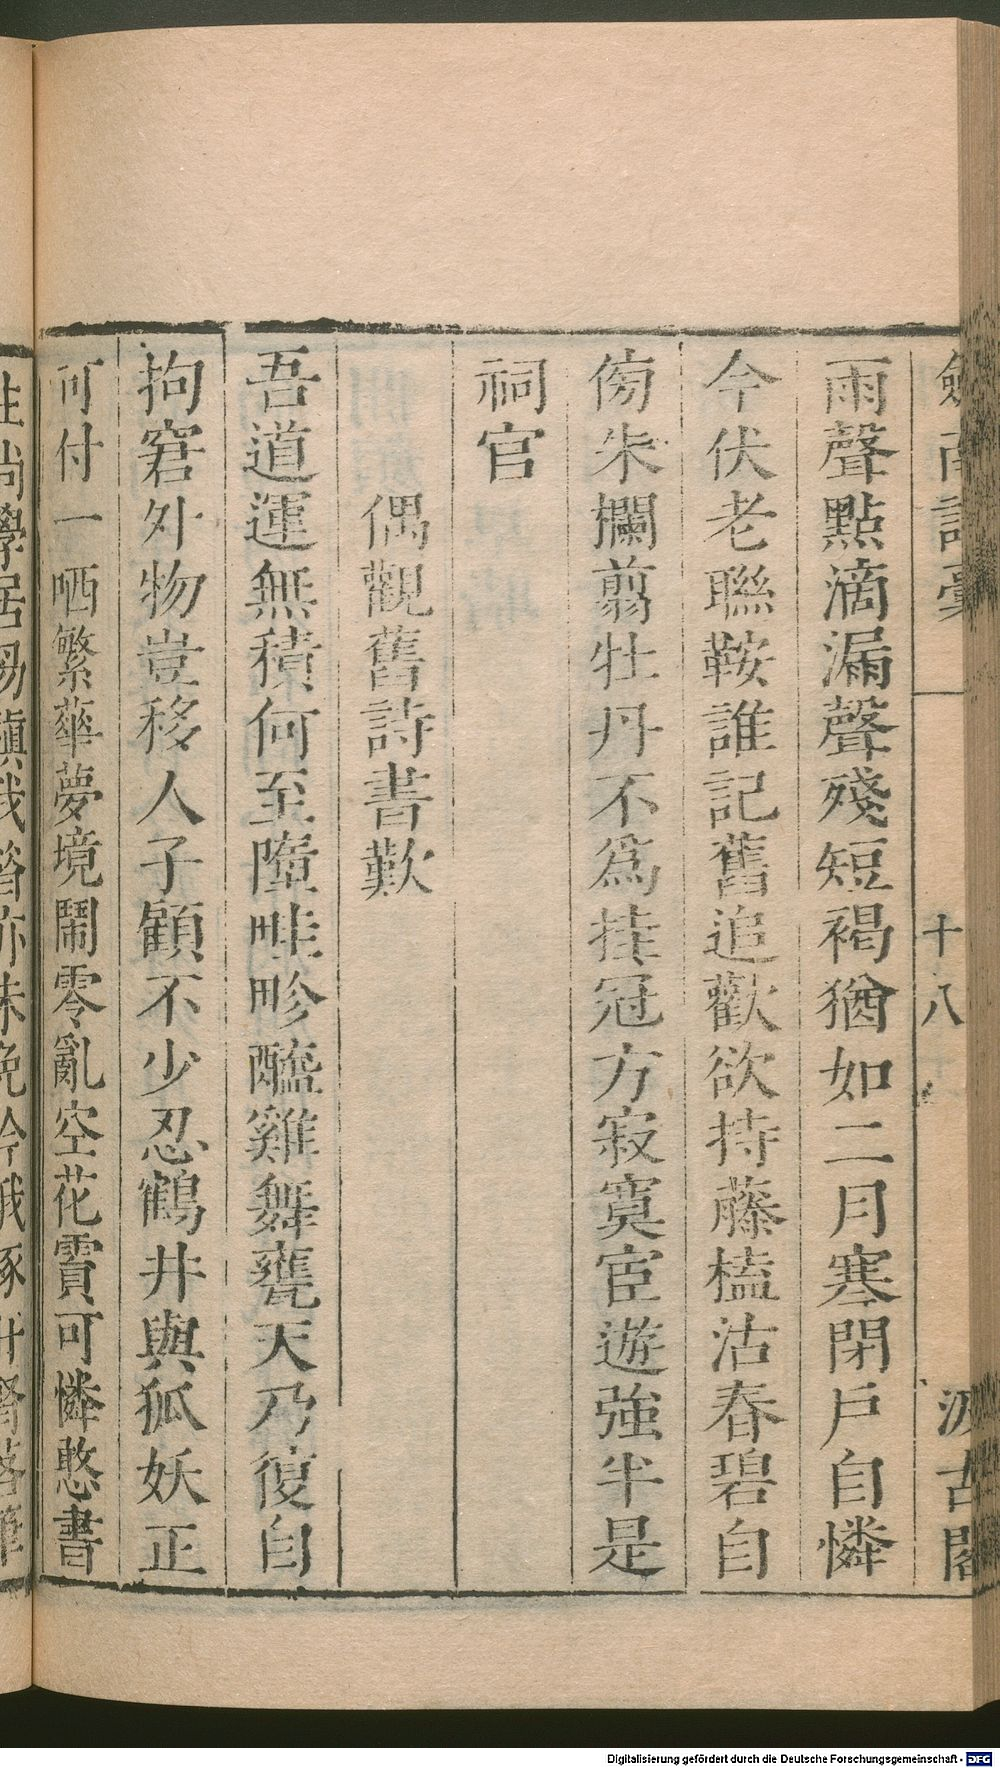 劍南詩稾 十八 汲古閣
雨聲點滴漏聲殘短褐猶如二月寒閉戶自憐
今伏老聯鞍誰記舊追歡欲持藤榼沽春碧自
傍朱欄翦牡丹不爲挂冠方寂寞宦遊強半是
祠官
偶觀舊詩書歎
吾道運無積何至墮畦畛醯雞舞甕天乃復自
拘窘外物豈移人子顧不少忍鶴井與狐妖正
可付一哂繁華夢境鬧零亂空花賈可憐憨書